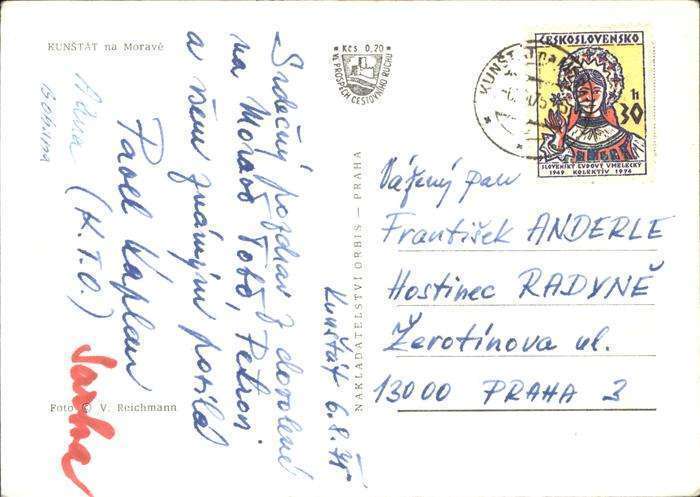 KUNŠTÁT na Moravě
Kčs 0,20
VE PROSPĚCH CESTOVNÍHO RUCHU
KUNŠTÁT na
ČESKOSLOVENSKO
30 h
SLOVENSKÝ ĽUDOVÝ UMELECKÝ
1949 KOLEKTÍV 1974
Srdečný pozdrav z dovolené
na Moravě Tobě, Petrovi
a všem známým posílá
Pavel Kaplan
(K.T.O.)
Sarka
Kunštát 6.8.75
NAKLADATELSTVÍ ORBIS — PRAHA
Vážený pan
František ANDERLE
Hostinec RADYNĚ
Žerotínova ul.
13000 PRAHA 3
Foto © V. Reichmann